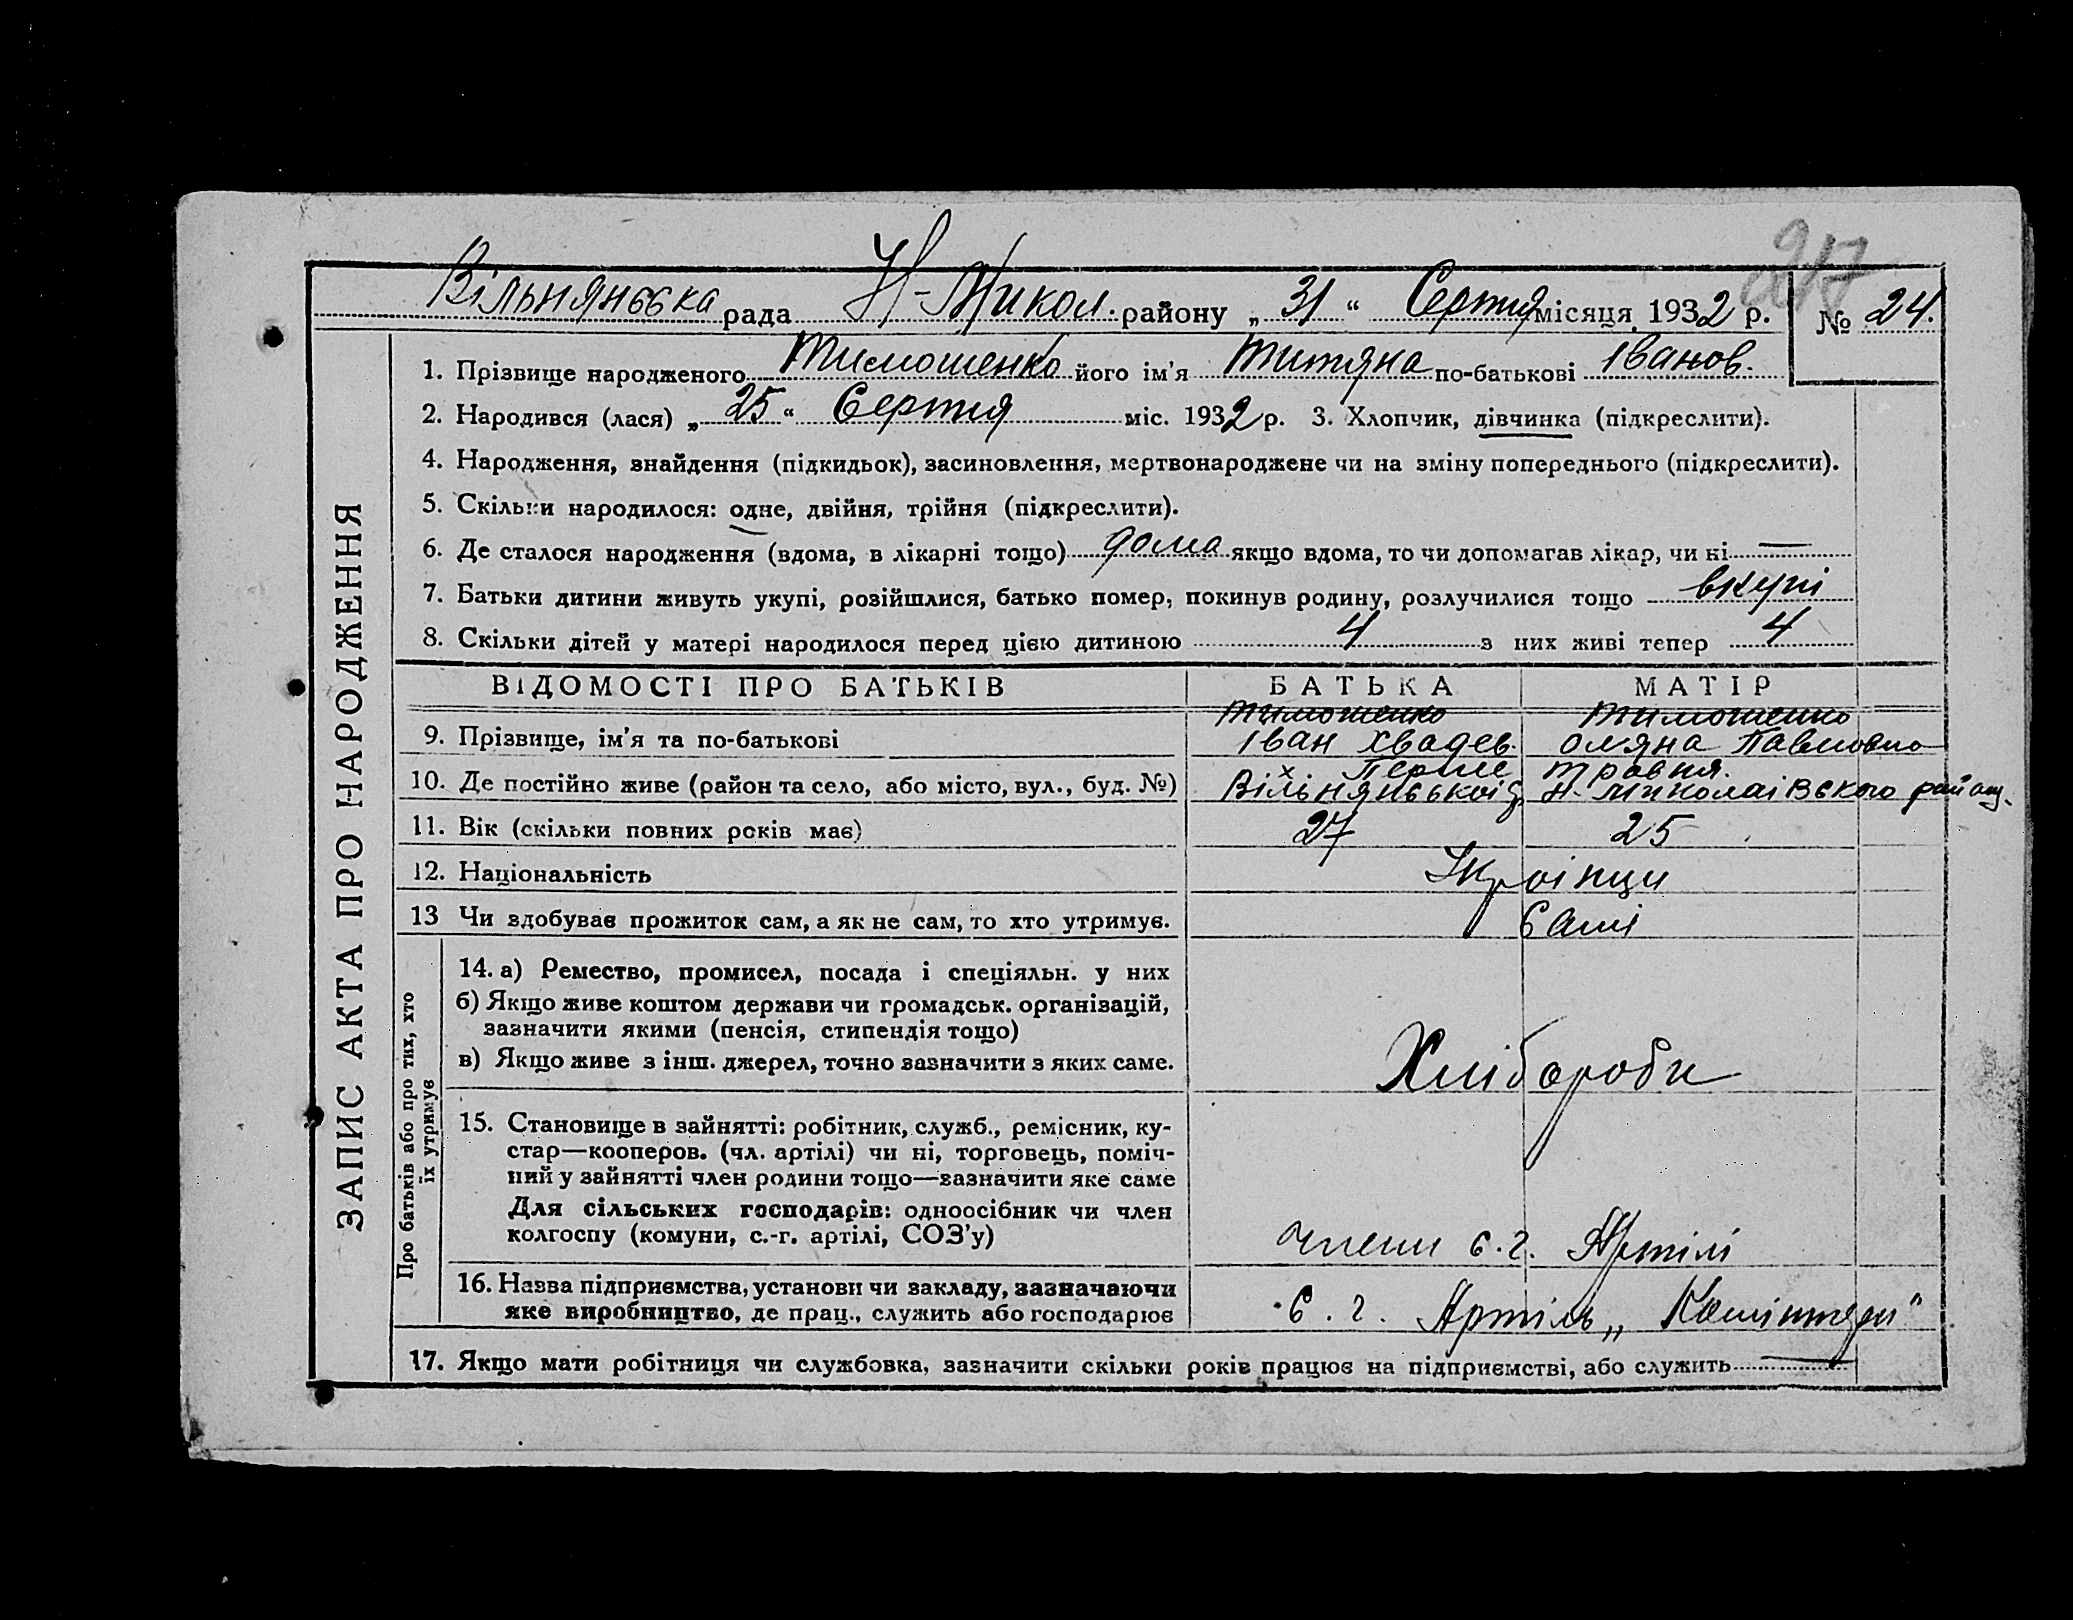 217
Вільнянська рада Н-Микол. району „ 31 “ Серпня місяця 1932 р. № 24.
ЗАПИС АКТА ПРО НАРОДЖЕННЯ
1. Прізвище народженого Тимошенко його ім'я Титяна по-батькові Іванов.
2. Народився (лася) „ 25 “ Серпня міс. 1932 р. 3. Хлопчик, дівчинка (підкреслити).
4. Народження, знайдення (підкидьок), засиновлення, мертвонароджене чи на зміну попереднього (підкреслити).
5. Скільки народилося: одне, двійня, трійня (підкреслити).
6. Де сталося народження (вдома, в лікарні тощо) дома якщо вдома, то чи допомагав лікар, чи ні —
7. Батьки дитини живуть укупі, розійшлися, батько помер, покинув родину, розлучилися тощо вкупі
8. Скільки дітей у матері народилося перед цією дитиною 4 з них живі тепер 4
ВІДОМОСТІ ПРО БАТЬКІВ БАТЬКА МАТІР
Тимошенко Тимошенко
9. Прізвище, ім'я та по-батькові Іван Хвадев. Оляна Павловно
х Перше Травня.
10. Де постійно живе (район та село, або місто, вул., буд. №) Вільнянської Н. Миколаівського району.
11. Вік (скільки повних років має) 27 25
12. Національність Украінци
13 Чи здобуває прожиток сам, а як не сам, то хто утримує. Самі
Про батьків або про тих, хто
їх утримує
14. а) Ремество, промисел, посада і спеціяльн. у них
б) Якщо живе коштом держави чи громадськ. організацій,
зазначити якими (пенсія, стипендія тощо)
в) Якщо живе з інш. джерел, точно зазначити з яких саме. Хлібороби
15. Становище в зайнятті: робітник, служб., ремісник, ку-
стар—кооперов. (чл. артілі) чи ні, торговець, поміч-
ний у зайнятті член родини тощо—зазначити яке саме
Для сільських господарів: одноосібник чи член
колгоспу (комуни, с.-г. артілі, СОЗ'у) члени с. г. Артілі
16. Назва підприємства, установи чи закладу, зазначаючи
яке виробництво, де прац., служить або господарює с. г. Артіль „Комінтерн"
17. Якщо мати робітниця чи службовка, зазначити скільки років працює на підприємстві, або служить —